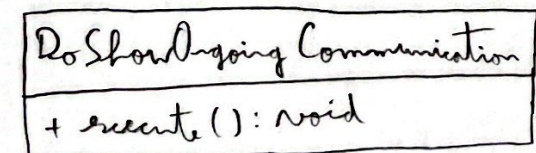 DoShowOngoing Communication
+ execute(): void